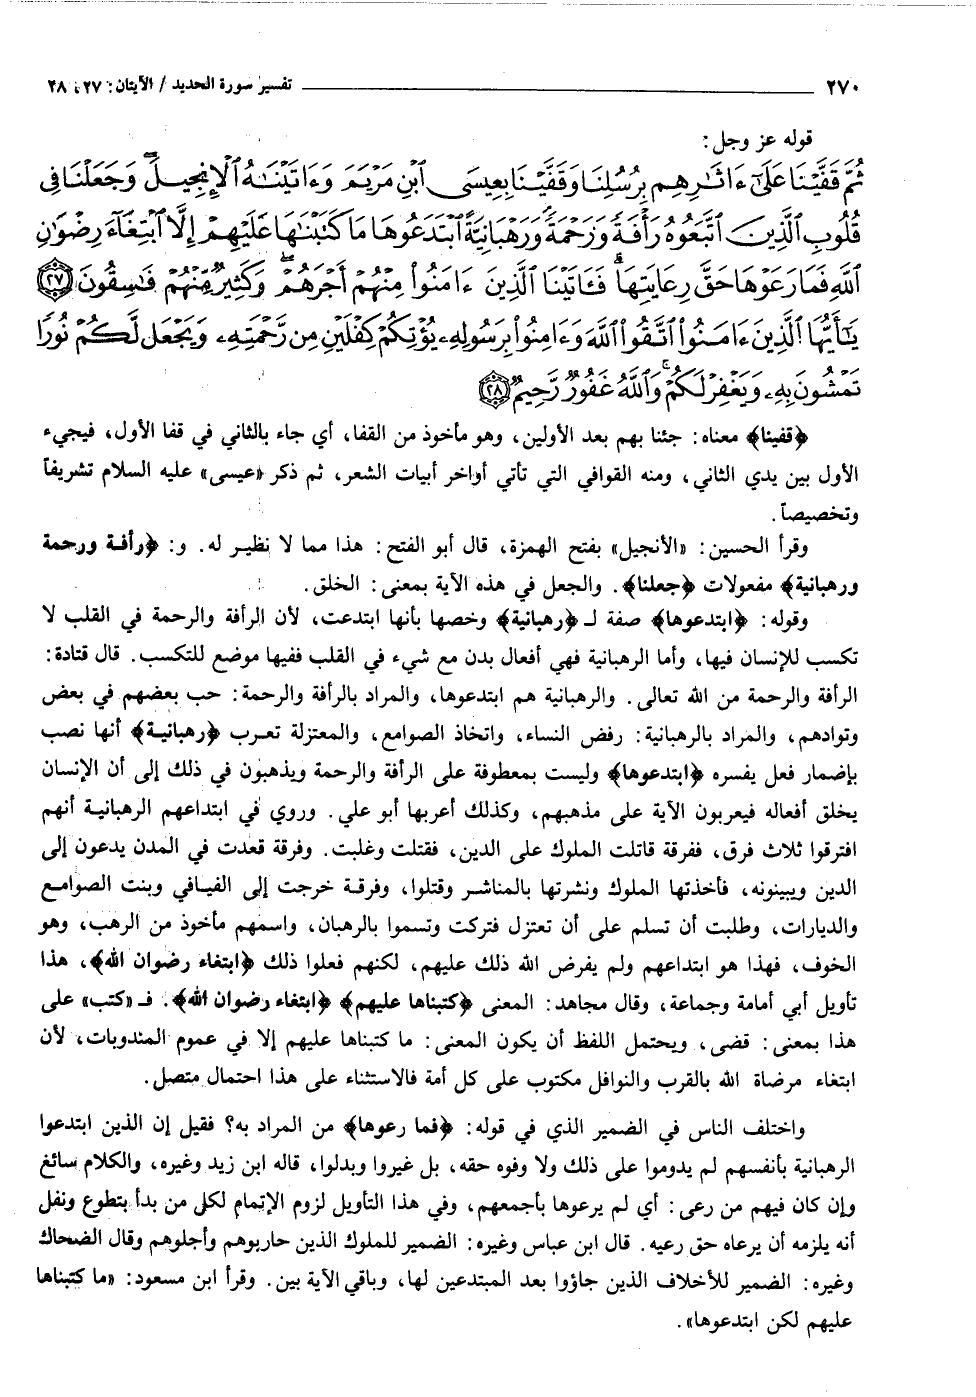 ٢٧٠ ــــــــــــــــ تفسير سورة الحديد / الآيتان: ٢٧، ٢٨
قوله عز وجل:
ثُمَّ قَفَّيْنَا عَلَىٰٓ ءَاثَٰرِهِم بِرُسُلِنَا وَقَفَّيْنَا بِعِيسَى ٱبْنِ مَرْيَمَ وَءَاتَيْنَٰهُ ٱلْإِنجِيلَ وَجَعَلْنَا فِى
قُلُوبِ ٱلَّذِينَ ٱتَّبَعُوهُ رَأْفَةً وَرَحْمَةً وَرَهْبَانِيَّةً ٱبْتَدَعُوهَا مَا كَتَبْنَٰهَا عَلَيْهِمْ إِلَّا ٱبْتِغَآءَ رِضْوَٰنِ
ٱللَّهِ فَمَا رَعَوْهَا حَقَّ رِعَايَتِهَا ۖ فَـَٔاتَيْنَا ٱلَّذِينَ ءَامَنُوا۟ مِنْهُمْ أَجْرَهُمْ ۖ وَكَثِيرٌ مِّنْهُمْ فَٰسِقُونَ ﴿٢٧﴾
يَٰٓأَيُّهَا ٱلَّذِينَ ءَامَنُوا۟ ٱتَّقُوا۟ ٱللَّهَ وَءَامِنُوا۟ بِرَسُولِهِۦ يُؤْتِكُمْ كِفْلَيْنِ مِن رَّحْمَتِهِۦ وَيَجْعَل لَّكُمْ نُورًا
تَمْشُونَ بِهِۦ وَيَغْفِرْ لَكُمْ ۚ وَٱللَّهُ غَفُورٌ رَّحِيمٌ ﴿٢٨﴾
﴿قفينا﴾ معناه: جئنا بهم بعد الأولين، وهو مأخوذ من القفا، أي جاء بالثاني في قفا الأول، فيجيء
الأول بين يدي الثاني، ومنه القوافي التي تأتي أواخر أبيات الشعر، ثم ذكر «عيسى» عليه السلام تشريفاً
وتخصيصاً.
وقرأ الحسين: «الأنجيل» بفتح الهمزة، قال أبو الفتح: هذا مما لا نظير له. و: ﴿رأفة ورحمة
ورهبانية﴾ مفعولات ﴿جعلنا﴾. والجعل في هذه الآية بمعنى: الخلق.
وقوله: ﴿ابتدعوها﴾ صفة لـ ﴿رهبانية﴾ وخصها بأنها ابتدعت، لأن الرأفة والرحمة في القلب لا
تكسب للإنسان فيها، وأما الرهبانية فهي أفعال بدن مع شيء في القلب ففيها موضع للتكسب. قال قتادة:
الرأفة والرحمة من الله تعالى. والرهبانية هم ابتدعوها، والمراد بالرأفة والرحمة: حب بعضهم في بعض
وتوادهم، والمراد بالرهبانية: رفض النساء، واتخاذ الصوامع، والمعتزلة تعرب ﴿رهبانية﴾ أنها نصب
بإضمار فعل يفسره ﴿ابتدعوها﴾ وليست بمعطوفة على الرأفة والرحمة ويذهبون في ذلك إلى أن الإنسان
يخلق أفعاله فيعربون الآية على مذهبهم، وكذلك أعربها أبو علي. وروي في ابتداعهم الرهبانية أنهم
افترقوا ثلاث فرق، ففرقة قاتلت الملوك على الدين، فقتلت وغلبت. وفرقة قعدت في المدن يدعون إلى
الدين ويبينونه، فأخذتها الملوك ونشرتها بالمناشر وقتلوا، وفرقة خرجت إلى الفيافي وبنت الصوامع
والديارات، وطلبت أن تسلم على أن تعتزل فتركت وتسموا بالرهبان، واسمهم مأخوذ من الرهب، وهو
الخوف، فهذا هو ابتداعهم ولم يفرض الله ذلك عليهم، لكنهم فعلوا ذلك ﴿ابتغاء رضوان الله﴾، هذا
تأويل أبي أمامة وجماعة، وقال مجاهد: المعنى ﴿كتبناها عليهم﴾ ﴿ابتغاء رضوان الله﴾. فـ «كتب» على
هذا بمعنى: قضى، ويحتمل اللفظ أن يكون المعنى: ما كتبناها عليهم إلا في عموم المندوبات، لأن
ابتغاء مرضاة الله بالقرب والنوافل مكتوب على كل أمة فالاستثناء على هذا احتمال متصل.
واختلف الناس في الضمير الذي في قوله: ﴿فما رعوها﴾ من المراد به؟ فقيل إن الذين ابتدعوا
الرهبانية بأنفسهم لم يدوموا على ذلك ولا وفوه حقه، بل غيروا وبدلوا، قاله ابن زيد وغيره، والكلام سائغ
وإن كان فيهم من رعى: أي لم يرعوها بأجمعهم، وفي هذا التأويل لزوم الإتمام لكل من بدأ بتطوع ونفل
أنه يلزمه أن يرعاه حق رعيه. قال ابن عباس وغيره: الضمير للملوك الذين حاربوهم وأجلوهم وقال الضحاك
وغيره: الضمير للأخلاف الذين جاؤوا بعد المبتدعين لها، وباقي الآية بين. وقرأ ابن مسعود: «ما كتبناها
عليهم لكن ابتدعوها».